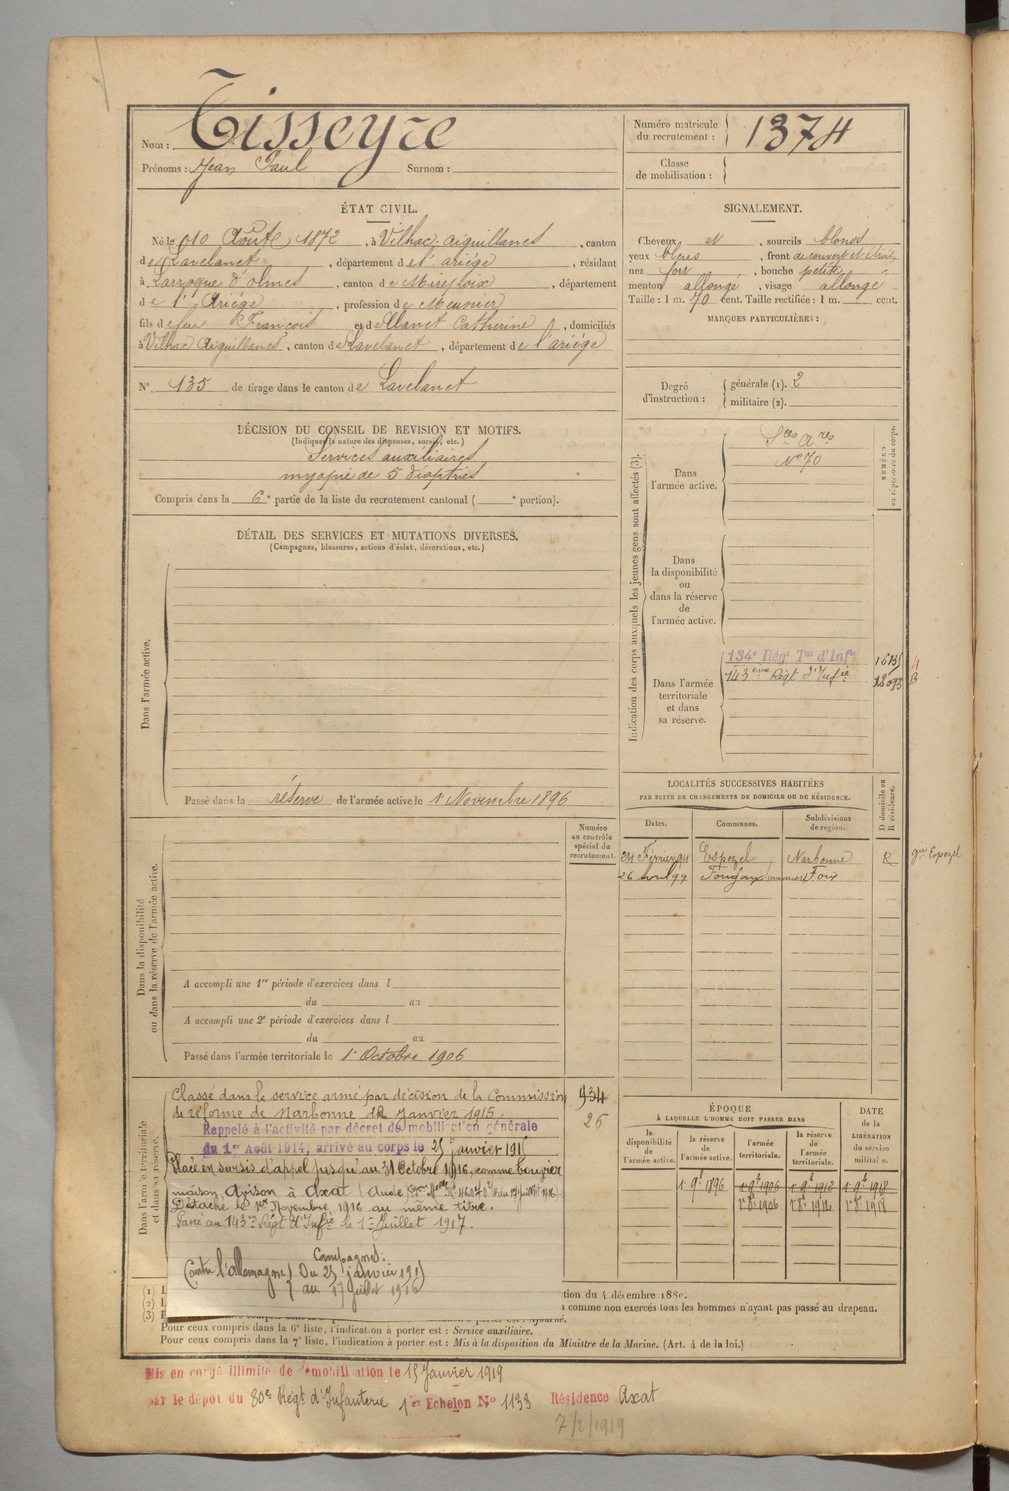 Nom : Tisseyre
Prénoms : Jean Paul Surnom :
Numéro matricule du recrutement : 1374
Classe de mobilisation :
ÉTAT CIVIL.
Né le 10 Août 1872, à Vilhac-aiguillanes, canton
de Lavelanet, département de l'ariège, résidant
à Larroque d'olmes, canton de Mirepoix, département
de l'Ariège, profession de Meunier
fils de feu François et d Catherine, domiciliés
à Vilhac Aiguillanes, canton de Lavelanet, département de l'ariège
N° 135 de tirage dans le canton de Lavelanet
SIGNALEMENT.
Cheveux et, sourcils blonds
yeux bleus, front découvert et
nez fort, bouche petite
menton allongé, visage allongé
Taille : 1 m. 70 cent. Taille rectifiée : 1 m. cent.
MARQUES PARTICULIÈRES :
Degré d'instruction : générale (1). 2
militaire (2).
DÉCISION DU CONSEIL DE REVISION ET MOTIFS.
(Indiquer la nature des dispenses, sursis, etc.)
Services auxiliaires
myopie de 5 dioptries
Compris dans la 6e partie de la liste du recrutement cantonal ( e portion).
DÉTAIL DES SERVICES ET MUTATIONS DIVERSES.
(Campagnes, blessures, actions d'éclat, décorations, etc.)
Dans l'armée active.
Passé dans la réserve de l'armée active le 1 Novembre 1896
Indication des corps auxquels les jeunes gens sont affectés (3).
NUMÉRO au répertoire du corps.
Dans l'armée active.
Sces Ares
N° 70
Dans la disponibilité ou dans la réserve de l'armée active.
Dans l'armée territoriale et dans sa réserve.
134e Régt Tal d'Infie
143eme Régt d'Infie
LOCALITÉS SUCCESSIVES HABITÉES
PAR SUITE DE CHANGEMENTS DE DOMICILE OU DE RÉSIDENCE.
D domicile ou R résidence.
Dates. Communes. Subdivisions de région.
24 Février 94 Espezel Narbonne R
26 Avril 99 Fougax Foix
Espezel
Numéro au contrôle spécial du recrutement.
Dans la disponibilité ou dans la réserve de l'armée active.
A accompli une 1re période d'exercices dans l
du au
A accompli une 2e période d'exercices dans l
du au
Passé dans l'armée territoriale le 1er Octobre 1906
Dans l'armée territoriale et dans sa réserve.
Classé dans le service armé par décision de la Commission
de réforme de Narbonne du Janvier 1915.
Rappelé à l'activité par décret de mobilisation générale
du 1er Août 1914, arrivé au corps le 25 janvier 1915
Placé en sursis d'appel jusqu'au 31 Octobre 1916, comme
maison Avison à Axat (Aude)
Détaché le 1er Novembre 1916 au même titre.
Passé au 143me Régt d'Infie le 1er Juillet 1917.
Campagnes :
Contre l'allemagne Du 25 janvier 1915
au 17 Juillet 1916
934
26
ÉPOQUE
À LAQUELLE L'HOMME DOIT PASSER DANS
DATE DE LA LIBÉRATION du service militaire.
la disponibilité de l'armée active. la réserve de l'armée active. l'armée territoriale. la réserve de l'armée territoriale.
1 9e 1896 1 9e 1906 1 9e 1912 1 9e 1918
1 8e 1906 1 8e 1912 1 8e 1918
tion du 4 décembre 188
comme non exercés tous les hommes n'ayant pas passé au drapeau.
Pour ceux compris dans la 6e liste, l'indication à porter est : Service auxiliaire.
Pour ceux compris dans la 7e liste, l'indication à porter est : Mis à la disposition du Ministre de la Marine. (Art. 4 de la loi.)
Mis en congé illimité de démobilisation le 15 Janvier 1919
par le dépôt du 80e Régt d'Infanterie 1er Echelon N° 1133 Résidence Axat
7/2/1919